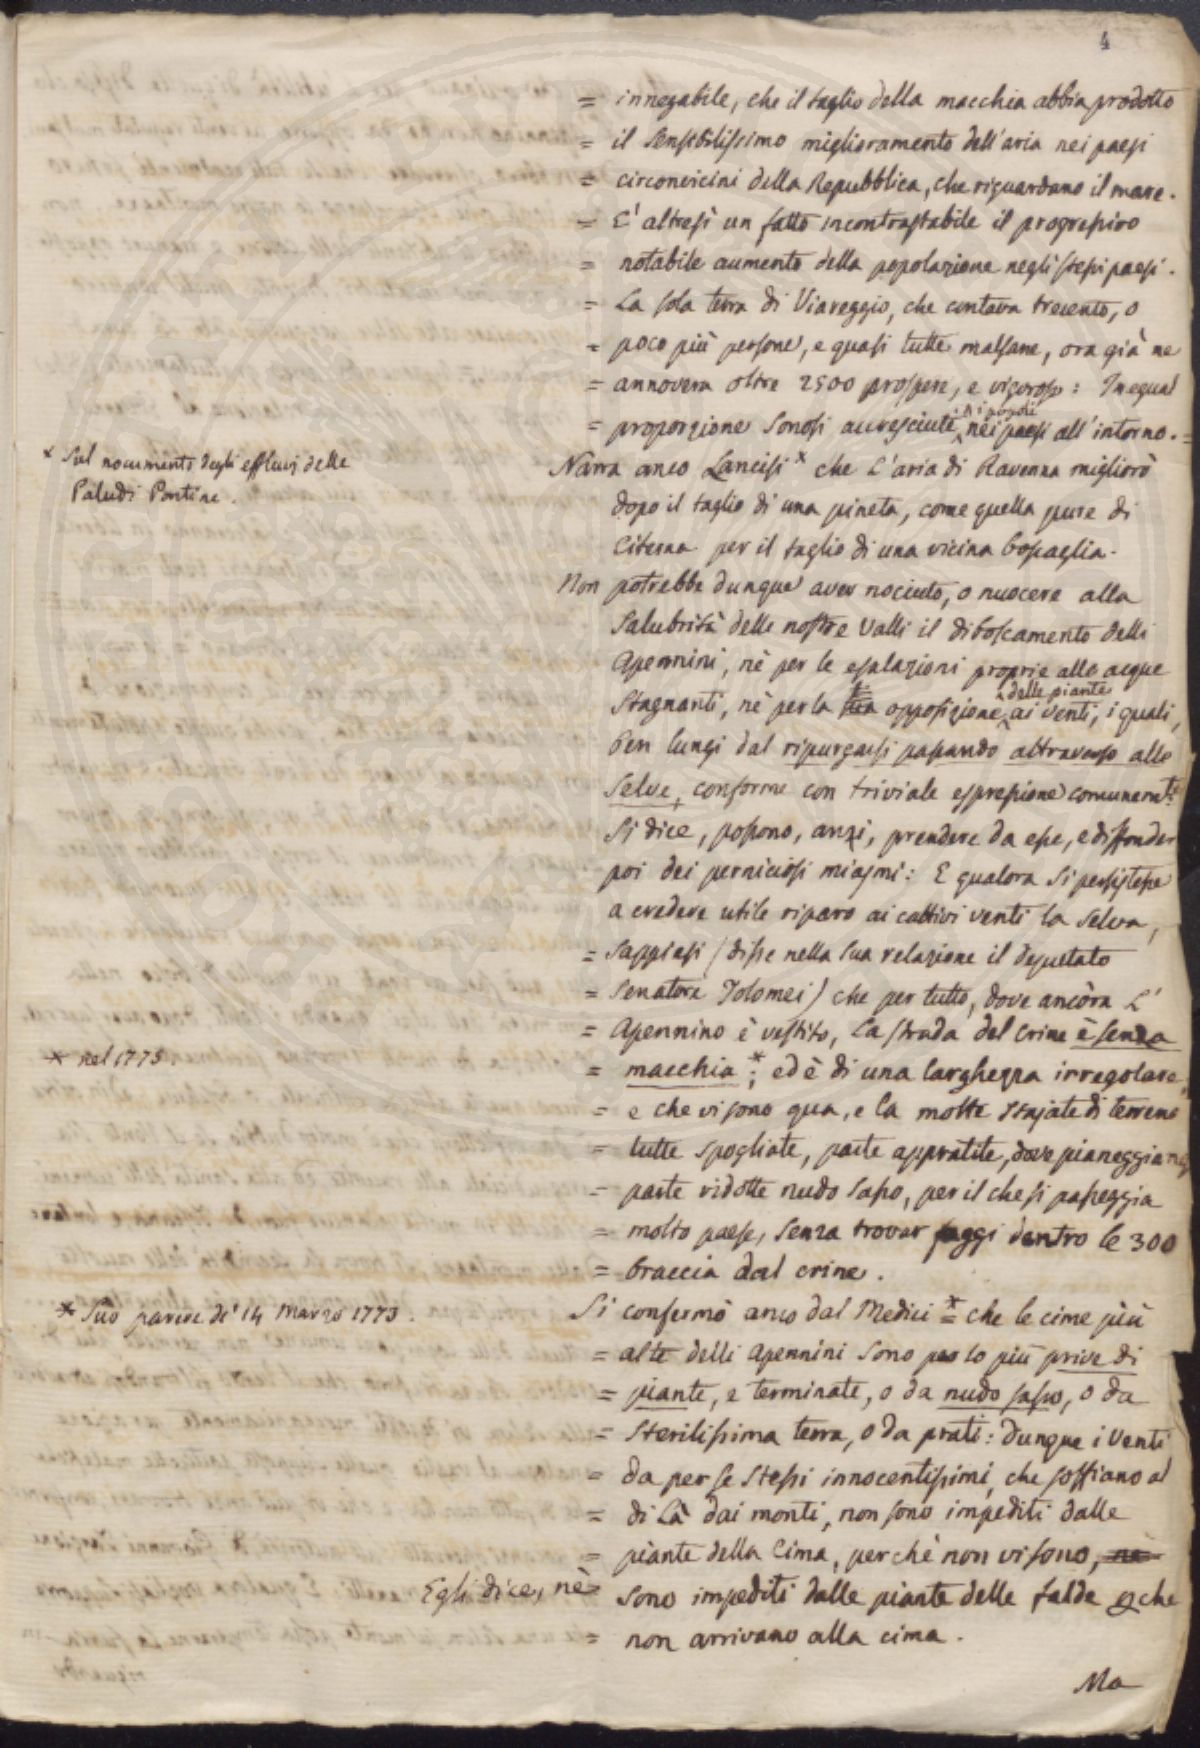 4
= innegabile, che il taglio della macchia abbia prodotto
= il sensibilissimo miglioramento dell'aria nei paesi
= circonvicini della Repubblica, che riguardano il mare.
= E' altresì un fatto incontrastabile il progressivo
= notabile aumento della popolazione negli stessi paesi.
= La sola terra di Viareggio, che contava trecento, o
= poco più persone, e quasi tutte malsane, ora già ne
= annovera oltre 2500 prospere, e vigorose: In egual
= proporzione sonosi accresciute i popoli nei paesi all'intorno. =
* Sul nocumento degli effluvj delle
Paludi Pontine.
Narra anco Lancisi * che l'aria di Ravenna migliorò
dopo il taglio di una pineta, come quella pure di
Citerna per il taglio di una vicina boscaglia.
Non potrebbe dunque aver nociuto, o nuocere alla
salubrità delle nostre Valli il diboscamento delli
Apennini, nè per le esalazioni proprie alle acque
stagnanti, nè per la opposizione delle piante ai venti, i quali,
ben lungi dal ripurgarsi passando attraverso alle
selve, conforme con triviale espressione comunemte
si dice, possono, anzi, prendere da esse, e diffonder
poi dei perniciosi miasmi: E qualora si persistesse
a credere utile riparo ai cattivi venti la selva,
= Sappiasi (disse nella sua relazione il deputato
= Senatore Tolomei) che per tutto, dove ancòra l'
= Apennino è vestito, la strada del crine è senza
* nel 1775.
= macchia *; ed è di una larghezza irregolare,
= e che vi sono qua, e la molte stajate di terreno
= tutte spogliate, parte appratite, dove pianeggiano,
= parte ridotte nudo sasso, per il che si passeggia
= molto paese, senza trovar faggi dentro le 300
= braccia dal crine.
* Suo parere de' 14 Marzo 1773.
Si confermò anco dal Medici * = che le cime più
= alte delli Apennini sono per lo più prive di
= piante, e terminate, o da nudo sasso, o da
= sterilissima terra, o da prati: dunque i Venti
= da per se stessi innocentissimi, che soffiano al
= di là dai monti, non sono impediti dalle
= piante della Cima, perchè non vi sono, nè
Egli dice, nè = sono impediti dalle piante delle falde perche
= non arrivano alla cima.
Ma